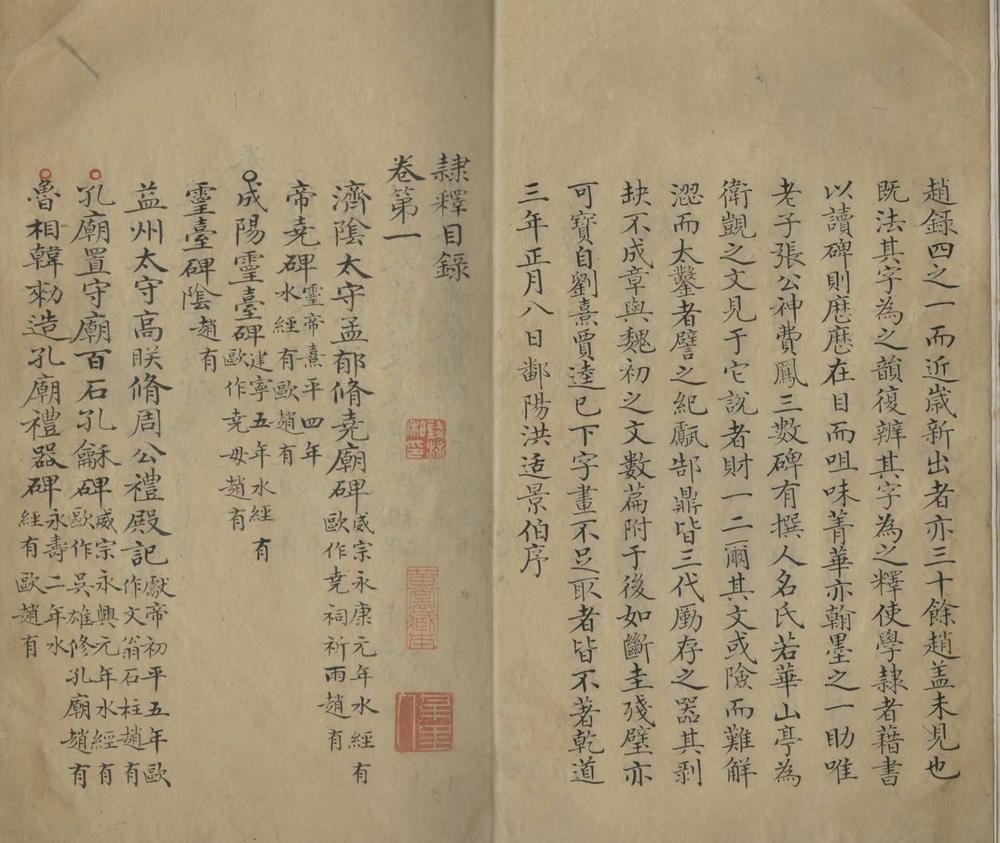 趙錄四之一而近歲新出者亦三十餘趙盖未見也
既法其字為之韻復辨其字為之釋使學隷者藉書
以讀碑則歷歷在目而咀味菁華亦翰墨之一助唯
老子張公神費鳳三數碑有撰人名氏若華山亭為
衛覬之文見于它說者財一二爾其文或險而難解
澀而太鑿者譬之紀甗郜鼎皆三代厲存之器其剥
缺不成章與魏初之文數篇附于後如斷圭殘璧亦
可寶自劉熹賈逵已下字畫不足取者皆不著乾道
三年正月八日鄱陽洪适景伯序
隷釋目錄
卷第一
濟陰太守孟郁脩堯廟碑威宗永康元年水經有歐作堯祠祈雨趙有
帝堯碑靈帝熹平四年水經有歐趙有
成陽靈臺碑建寧五年水經有歐作堯母趙有
靈臺碑陰趙有
益州太守高眹脩周公禮殿記獻帝初平五年歐作文翁石柱趙有
孔廟置守廟百石孔龢碑威宗永興元年水經有歐作吳雄修孔廟趙有
魯相韓勑造孔廟禮器碑永壽二年水經有歐趙有